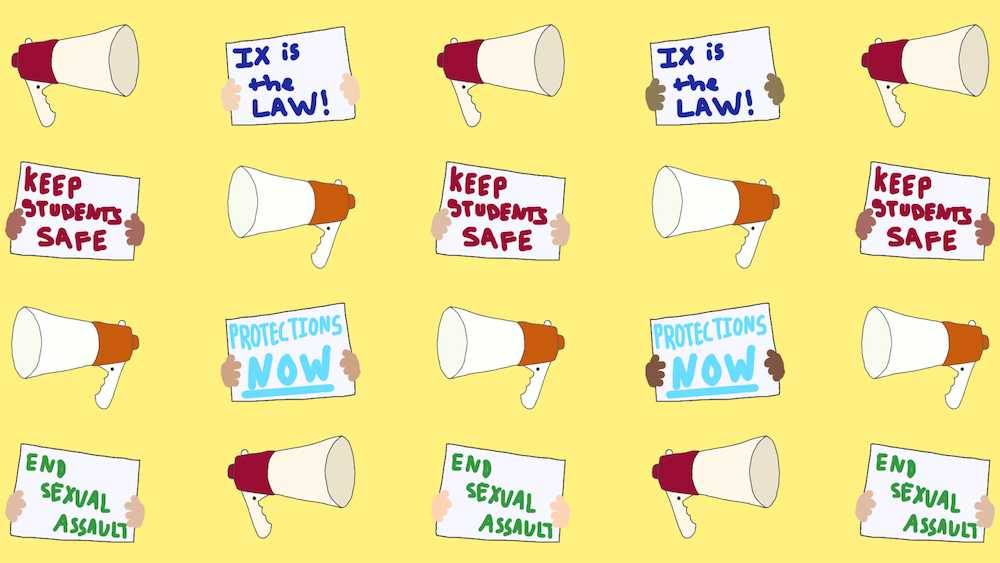 IX is
the
LAW!
IX is
the
LAW!
KEEP
STUDENTS
SAFE
KEEP
STUDENTS
SAFE
KEEP
STUDENTS
SAFE
PROTECTIONS
NOW
PROTECTIONS
NOW
END
SEXUAL
ASSAULT
END
SEXUAL
ASSAULT
END
SEXUAL
ASSAULT